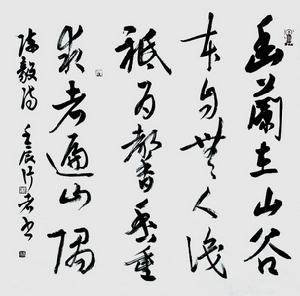 幽蘭在山谷
本自無人識
祇為馨香重
求者遍山隅
陳毅詩 壬辰 書